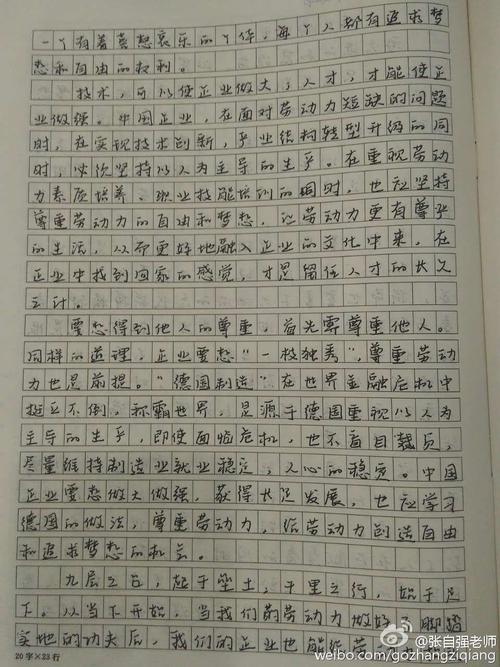 一个有着喜怒哀乐的个体，每个人都有追求梦
想和自由的权利。
技术，可以使企业做大；人才，才能使企
业做强。中国企业，在面对劳动力短缺的问题
时，在实现技术创新，产业结构转型升级的同
时，必须坚持以人为主导的生产。在重视劳动
力素质培养、职业技能培训的同时，也应坚持
尊重劳动力的自由和梦想，让劳动力更有尊严
的生活，从而更好地融入企业的文化中来，在
企业中找到回家的感觉，才是留住人才的长久
之计。
要想得到他人的尊重，首先要尊重他人。
同样的道理，企业要想“一枝独秀”，尊重劳动
力也是前提。“德国制造”在世界金融危机中
挺立不倒，称霸世界，是源于德国重视以人为
主导的生产，即使面临危机，也不盲目裁员，
尽量维持制造业就业稳定，人心的稳定。中国
企业要想做大做强，获得长足发展，也应学习
德国的做法，尊重劳动力，给劳动力创造自由
和追求梦想的机会。
九层之台，起于垒土，千里之行，始于足
下。从当下开始，当我们的劳动力做好
脚踏
实地的功夫后，我们的企业也能
@张自强老师
weibo.com/gozhangziqiang
20字×23行